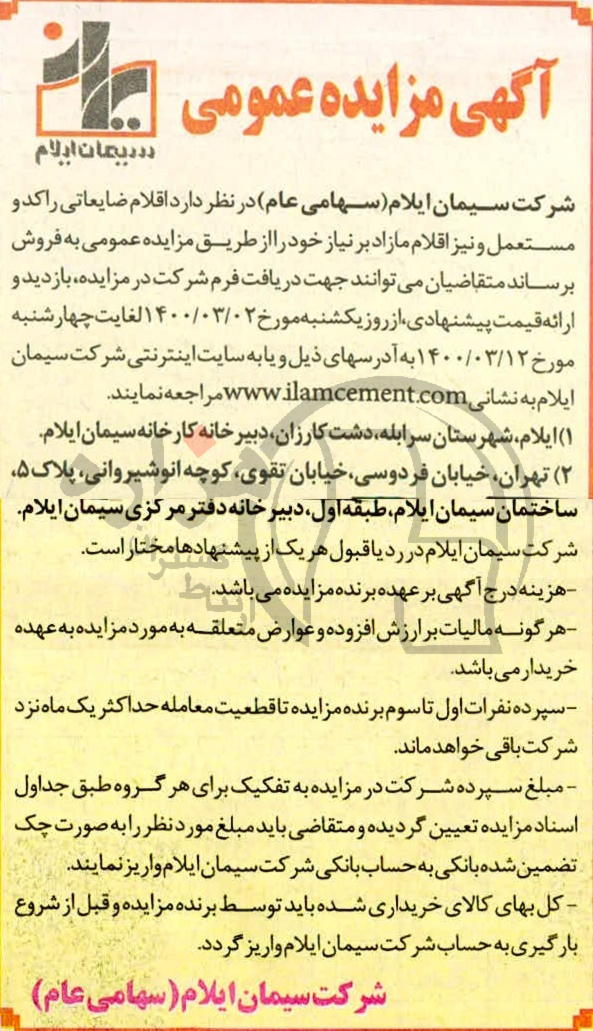 آگهی مزایده عمومی
سیمان ایلام
شرکت سیمان ایلام(سهامی عام)در نظر دارد اقلام ضایعاتی راکد و
مستعمل و نیز اقلام مازاد بر نیاز خود را از طریق مزایده عمومی به فروش
برساند متقاضیان می توانند جهت دریافت فرم شرکت در مزایده، بازدید و
ارائه قیمت پیشنهادی، از روز یکشنبه مورخ ۱۴۰۰/۰۳/۰۲ لغایت چهارشنبه
مورخ ۱۴۰۰/۰۳/۱۲ به آدرسهای ذیل و یا به سایت اینترنتی شرکت سیمان
ایلام به نشانی www.ilamcement.com مراجعه نمایند.
۱) ایلام، شهرستان سرابله، دشت کارزان، دبیرخانه کارخانه سیمان ایلام.
۲) تهران، خیابان فردوسی، خیابان تقوی، کوچه انوشیروانی، پلاک ۵،
ساختمان سیمان ایلام، طبقه اول، دبیرخانه دفتر مرکزی سیمان ایلام.
شرکت سیمان ایلام در رد یا قبول هر یک از پیشنهادها مختار است.
-هزینه درج آگهی بر عهده برنده مزایده می باشد.
-هر گونه مالیات بر ارزش افزوده و عوارض متعلقه به مورد مزایده به عهده
خریدار می باشد.
-سپرده نفرات اول تا سوم برنده مزایده تا قطعیت معامله حداکثر یک ماه نزد
شرکت باقی خواهد ماند.
- مبلغ سپرده شرکت در مزایده به تفکیک برای هر گروه طبق جداول
اسناد مزایده تعیین گردیده و متقاضی باید مبلغ مورد نظر را به صورت چک
تضمین شده بانکی به حساب بانکی شرکت سیمان ایلام واریز نمایند.
- کل بهای کالای خریداری شده باید توسط برنده مزایده و قبل از شروع
بارگیری به حساب شرکت سیمان ایلام واریز گردد.
شرکت سیمان ایلام(سهامی عام)